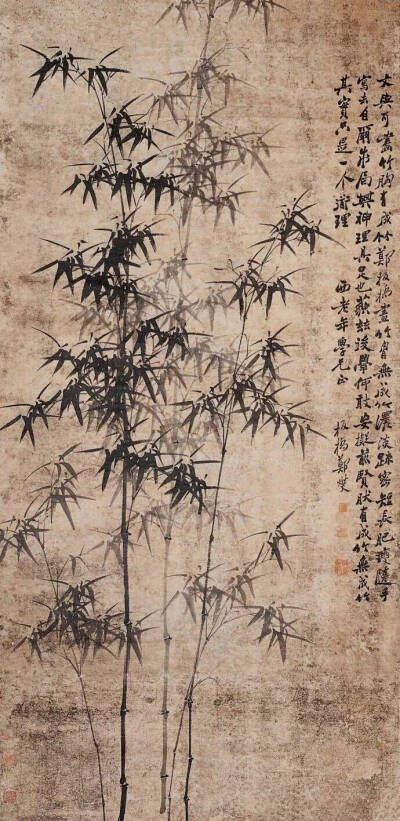 文與可畫竹胸有成竹鄭板橋畫竹胸無成竹濃淡疎密短長肥瘦隨手
寫去自爾成局其神理具足也藐茲後學何敢妄擬前賢然有成竹無成竹
其實只是一个道理
老年學兄正
板橋鄭燮